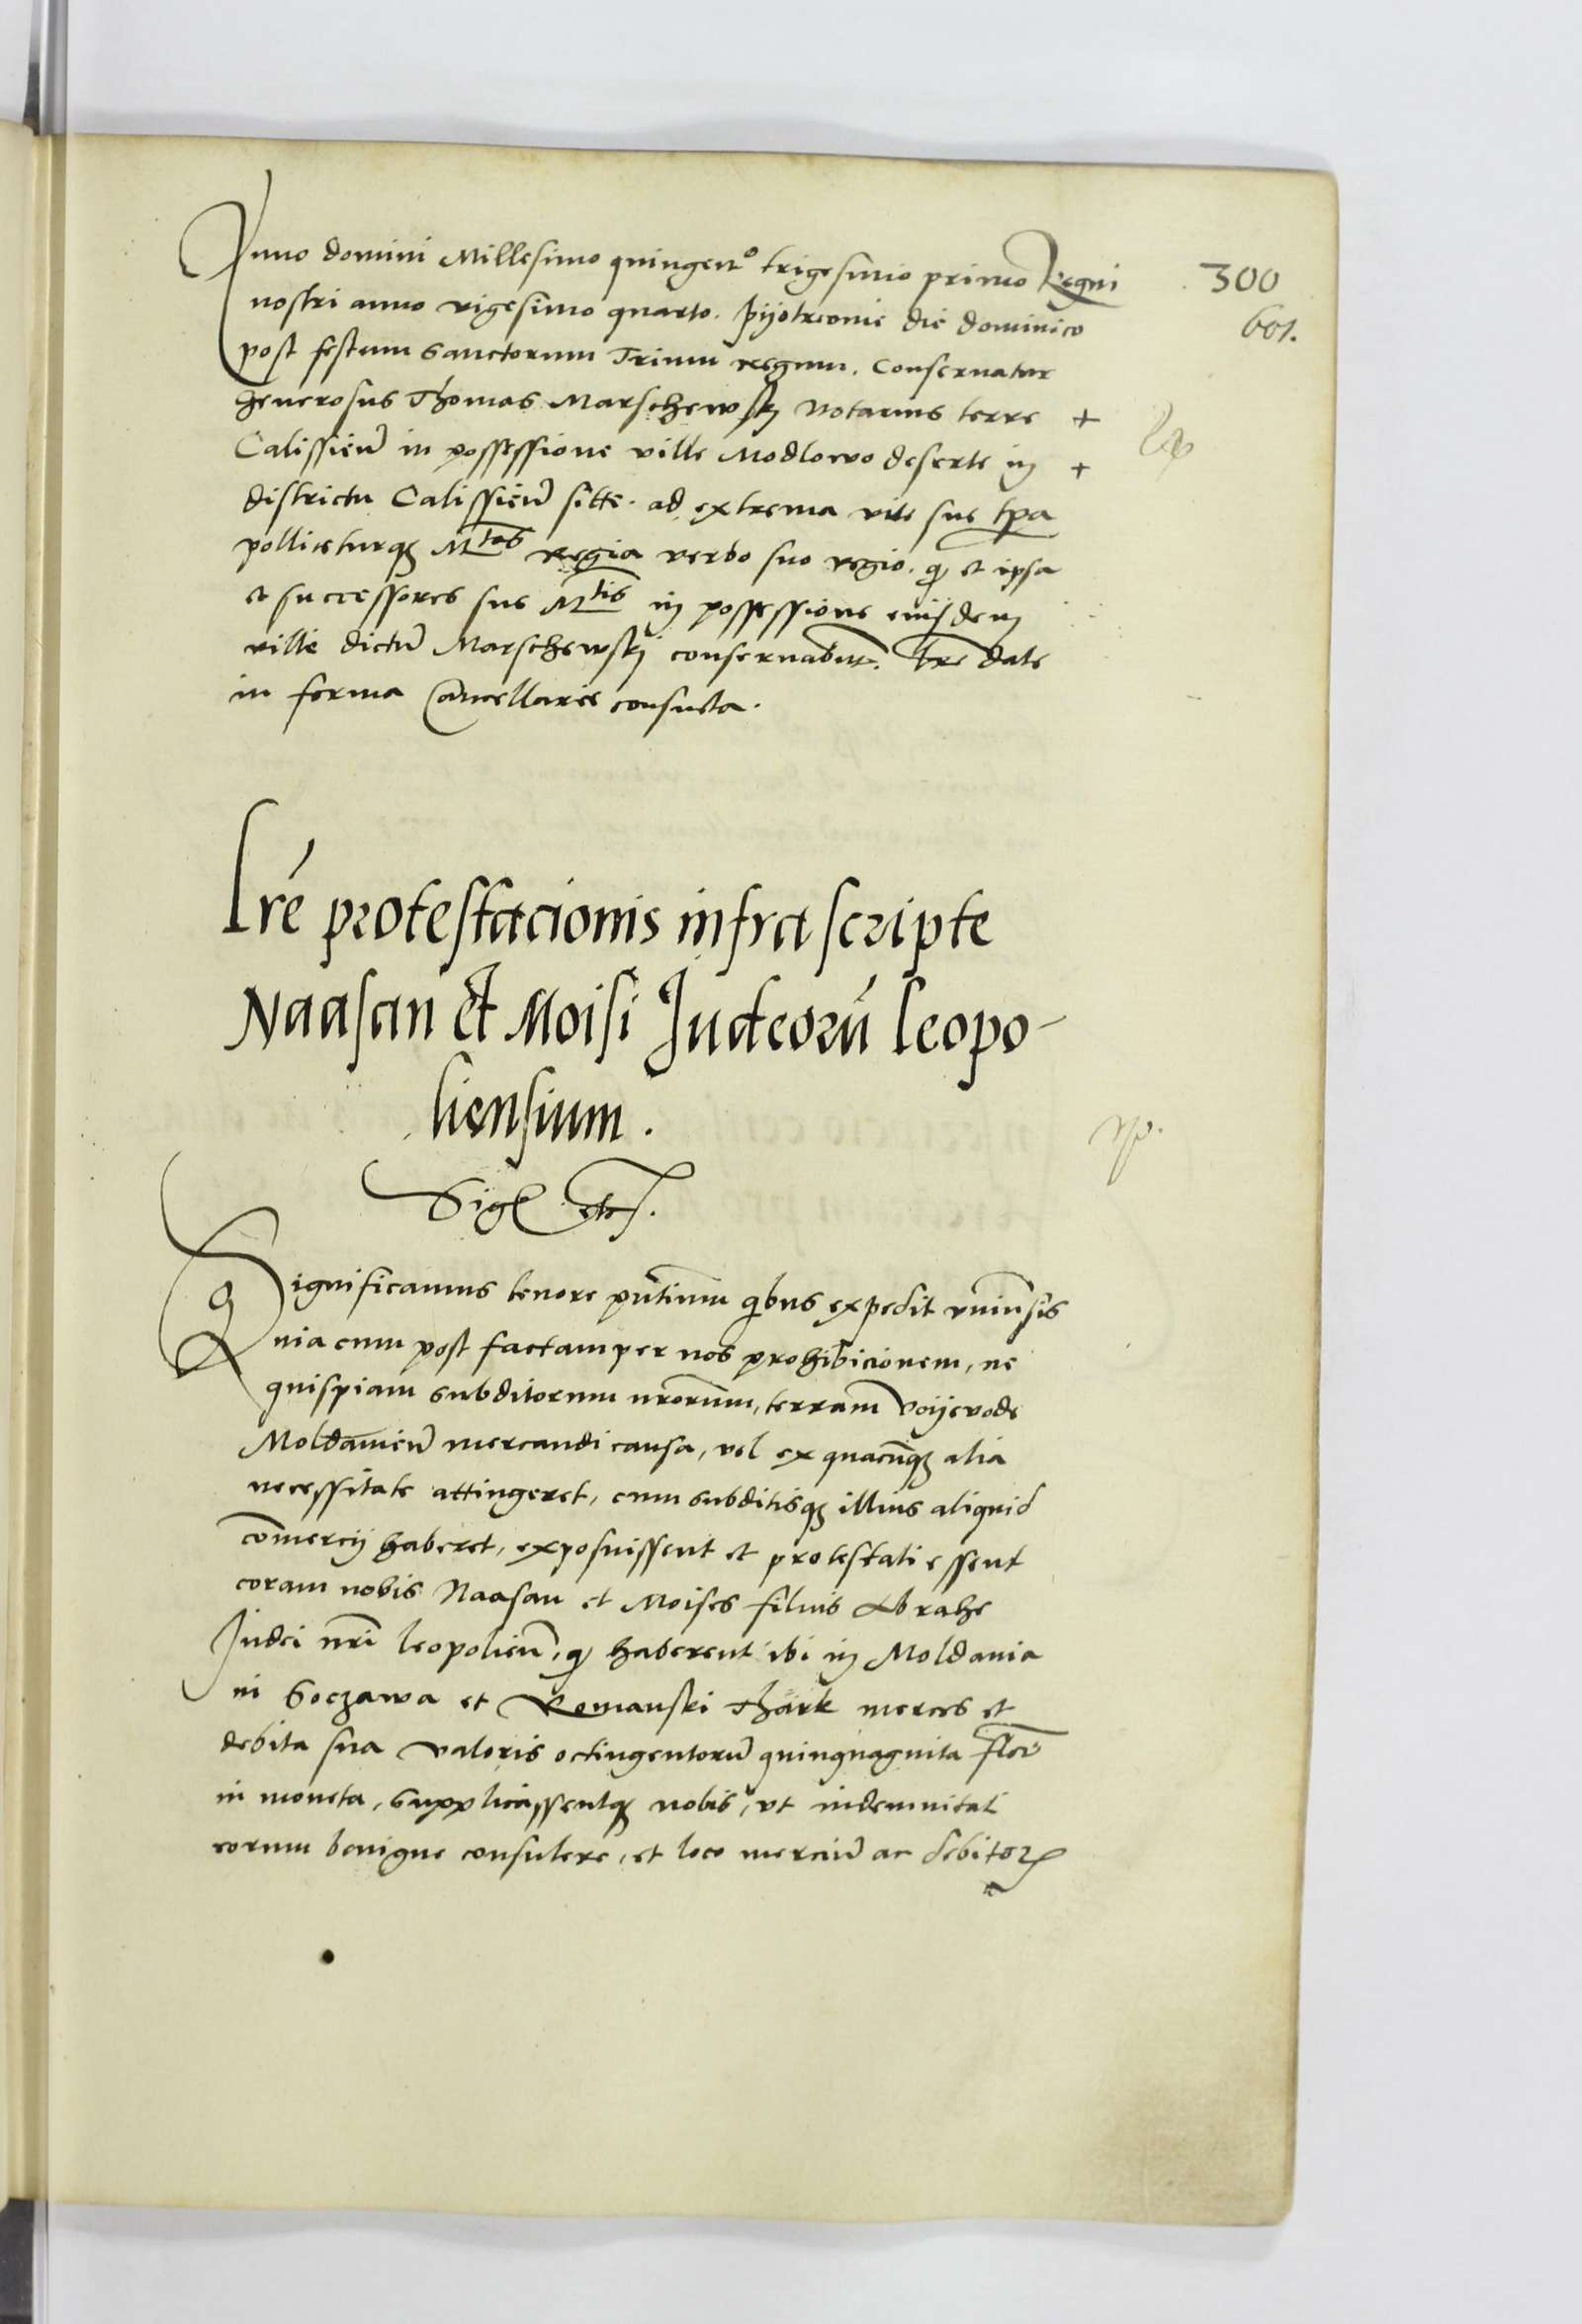 Anno domini Millesimo quingent° trigesimo primo Regni
300
nostri anno vigesimo quarto. Pijotrcovie die dominico
601.
post festum Sanctorum Trium regum. Conservatur
generosus Thomas Marschewskj Notarius terre +
Calissień in possessione ville Modlowo deserte in +
districtu Calissień sitte. ad extrema vite sue tpa
polliceturqz Mtas regia verbo suo regio. q et ipsa
et successores sue Mtis in possessione eiusdem
ville dictū Marschewskj conservabut. Lre date
in forma Cancellarie consueta.
Lre protestacionis infrascripte
Naasan et Moisi Judeorū leopo-
liensium.
Sigl etc.
Significamus tenore pntium qbus expedit vniūsis
Quia cum post factam per nos prohibicionem, ne
quispiam subditorum nrorum, terram Voijevode
Moldavień mercandi causa, vel ex quacūqz alia
necessitate attingeret, cum subditisqz illius aliquid
comercij haberet, exposuissent et protestati essent
coram nobis Naasan et Moises filius Abrahe
Judei nri leopolień, q haberent ibi in Moldavia
in Soczawa et Romanski Thark merces et
debita sua valoris octingentorū quinquaginta flor
in moneta, supplicassentqz nobis, vt indemnitati
eorum benigne consulere, et loco merciū ac debitoꝝ